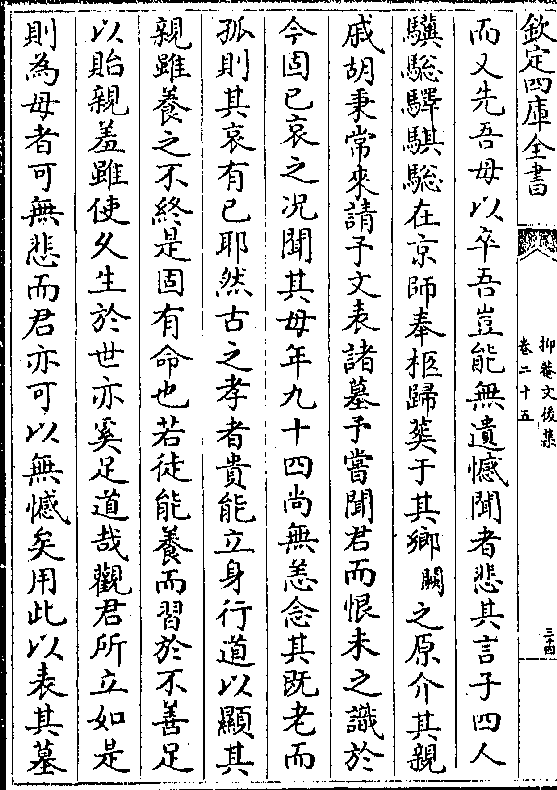 欽定四庫全書
抑菴文後集
卷二十五
三十四
而又先吾母以卒吾豈能無遺憾聞者悲其言子四人
驥騘驛騏騘在京師奉柩歸葬于其鄉闕之原介其親
戚胡秉常來請予文表諸墓予嘗聞君而恨未之識於
今固已哀之况聞其母年九十四尚無恙念其既老而
孤則其哀有已耶然古之孝者貴能立身行道以顯其
親雖養之不終是固有命也若徒能養而習於不善足
以貽親羞雖使久生於世亦奚足道哉觀君所立如是
則為母者可無悲而君亦可以無憾矣用此以表其墓